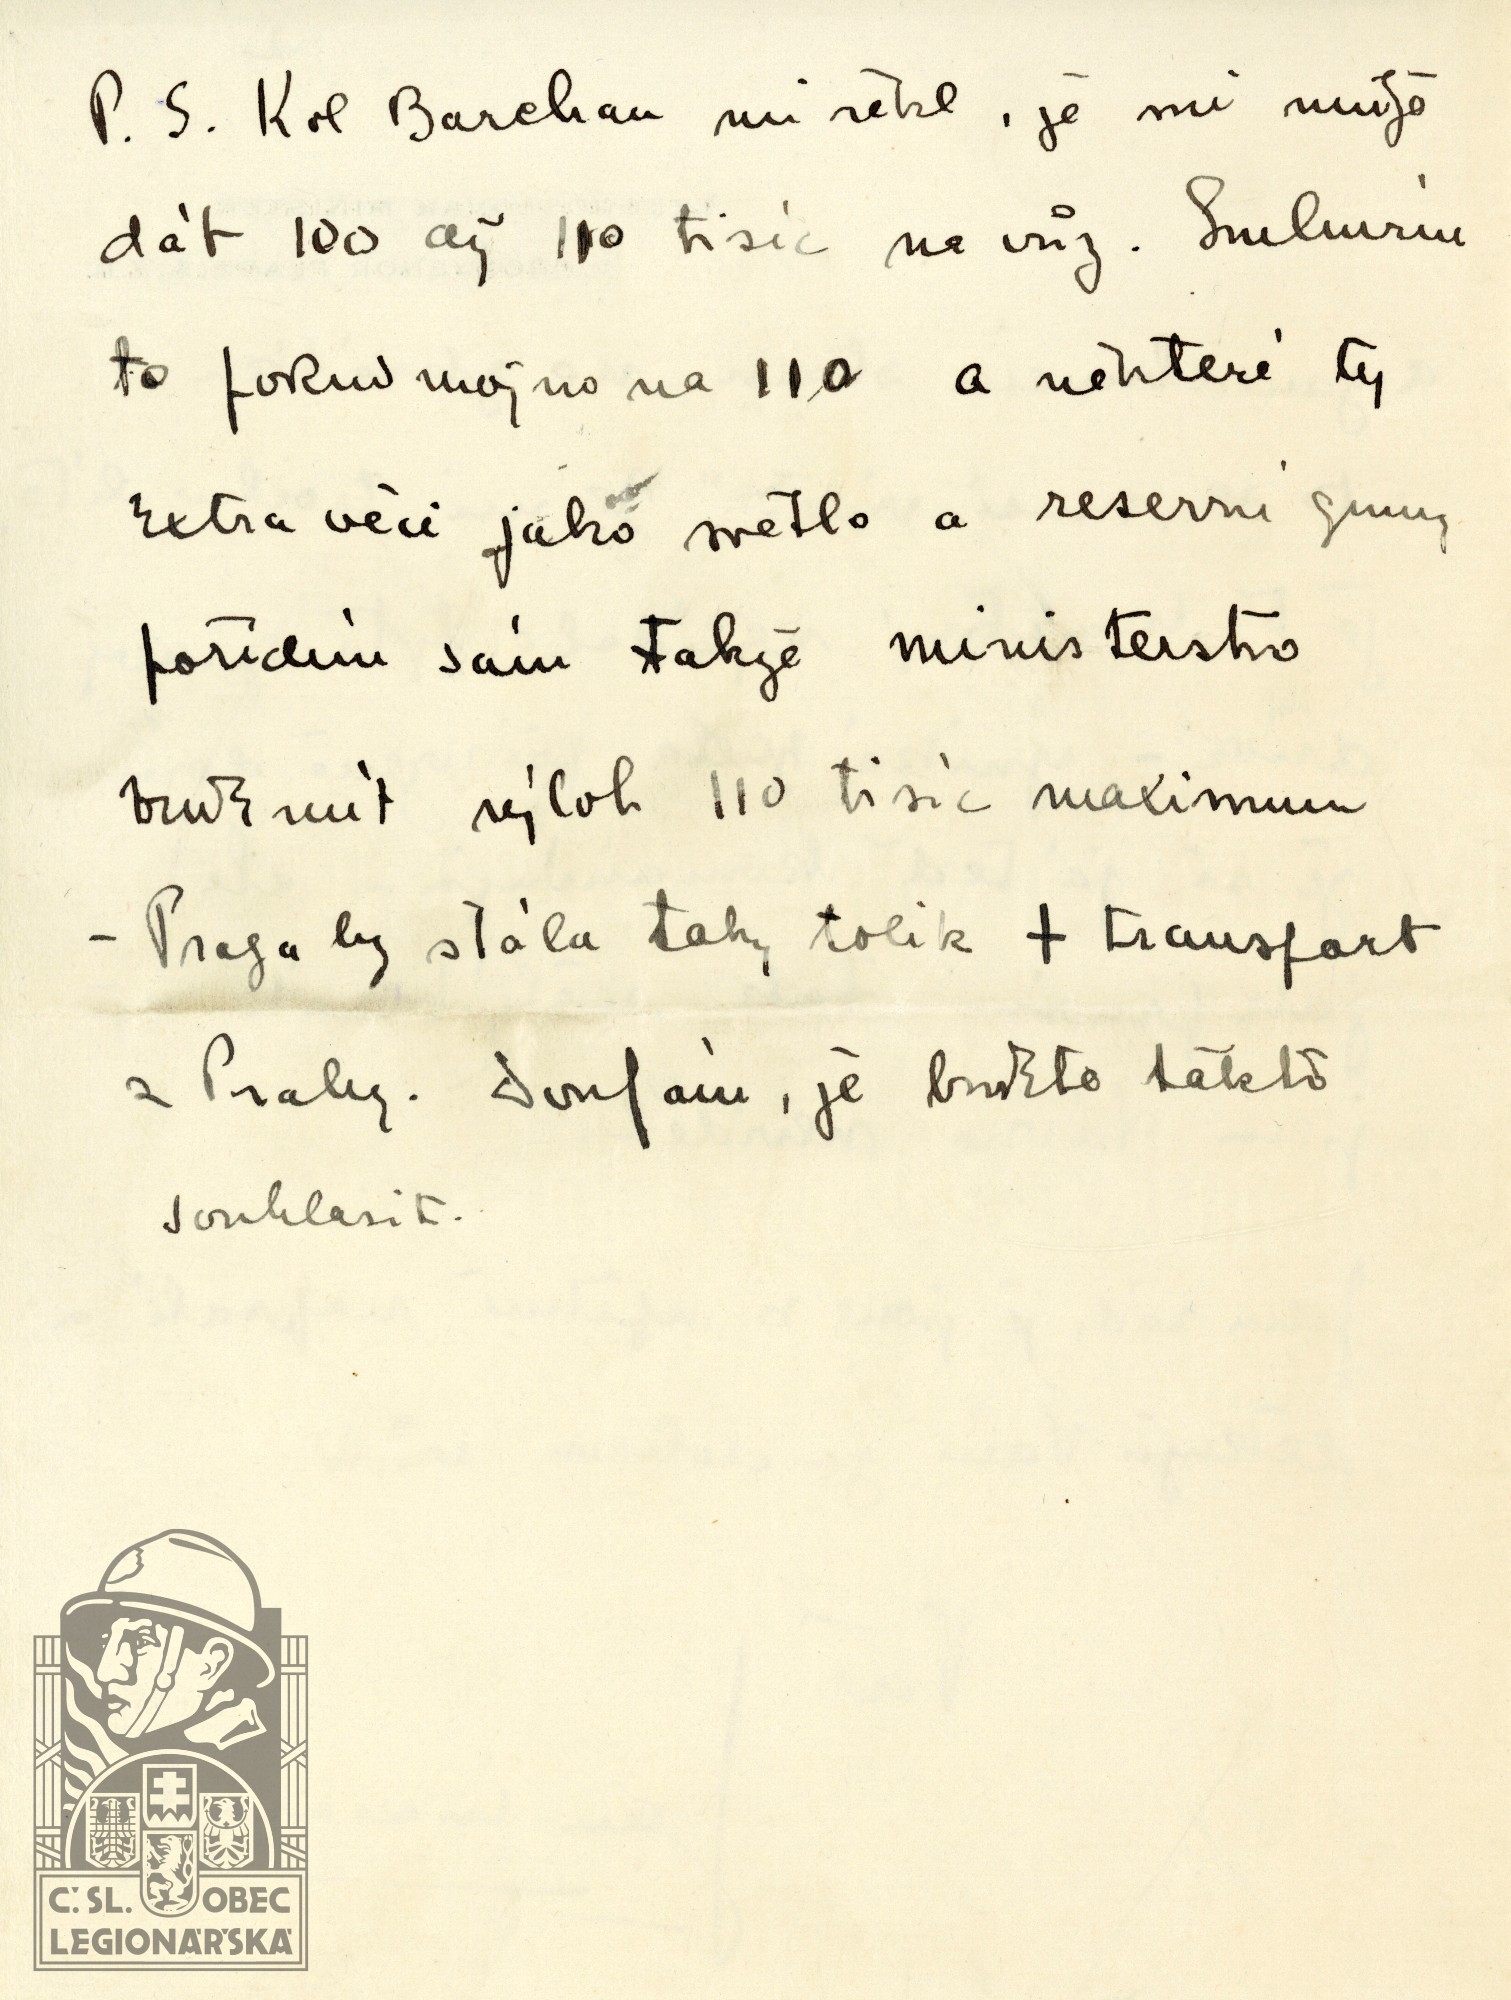 P. S. Kol Barchan mi řekl, že mi může
dát 100 až 110 tisíc na vůz. Smluvím
to pokud možno na 110 a některé ty
extra věci jako světlo a reservní gumy
pořídím sám takže ministerstvo
bude mít výloh 110 tisíc maximum
- Praga by stála taky tolik + transport
z Prahy. Doufám, že budete takto
souhlasit.
Č. SL. OBEC
LEGIONÁŘSKÁ